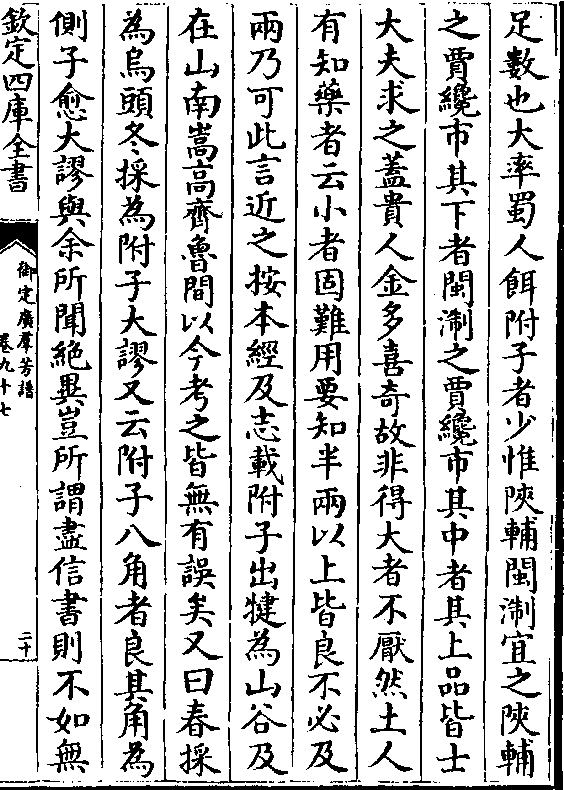 足數也大率蜀人餌附子者少惟陝輔閩淛宜之陝輔
之賈纔市其下者閩淛之賈纔市其中者其上品皆士
大夫求之蓋貴人金多喜奇故非得大者不厭然土人
有知藥者云小者固難用要知半兩以上皆良不必及
兩乃可此言近之按本經及志載附子出犍為山谷及
在山南嵩高齊魯間以今考之皆無有誤矣又曰春採
為烏頭冬採為附子大謬又云附子八角者良其角為
側子愈大謬與余所聞絶異豈所謂盡信書則不如無
欽定四庫全書
御定廣羣芳譜
卷九十七
二十